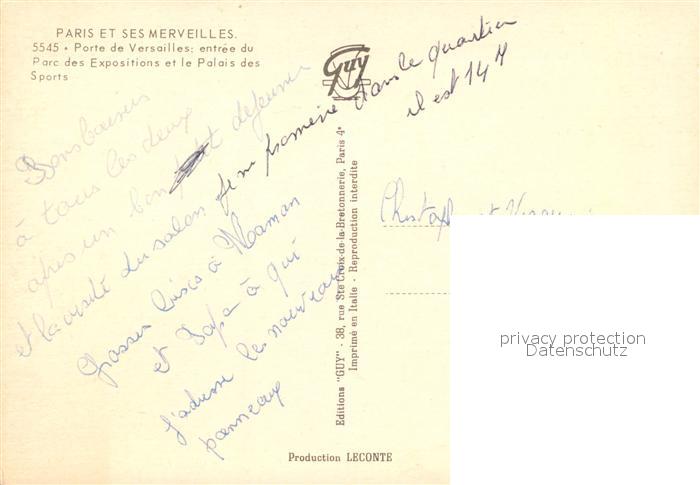 PARIS ET SES MERVEILLES.
5545 • Porte de Versailles: entrée du
Parc des Expositions et le Palais des
Sports
Guy
Bons baisers
à tous les deux
après un bon petit dejeuner
et la visite du salon je me promène dans le quartier
il est 14 H
Grosses bises à Maman
et Papa à qui
j'adresse les nouveaux
panneaux
Editions "GUY" - 38, rue Ste Croix-de-la-Bretonnerie, Paris 4e
Imprimé en Italie - Reproduction interdite
et
privacy protection
Datenschutz
Production LECONTE